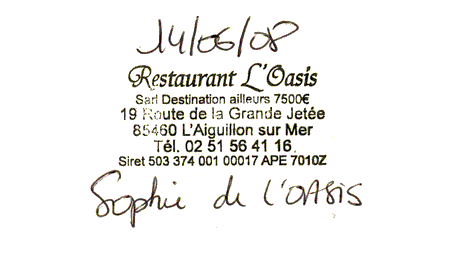 14/06/08
Restaurant L'Oasis
Sarl Destination ailleurs 7500€
19 Route de la Grande Jetée
85460 L'Aiguillon sur Mer
Tél. 02 51 56 41 16
Siret 503 374 001 00017 APE 7010Z
Sophie de L'OASIS